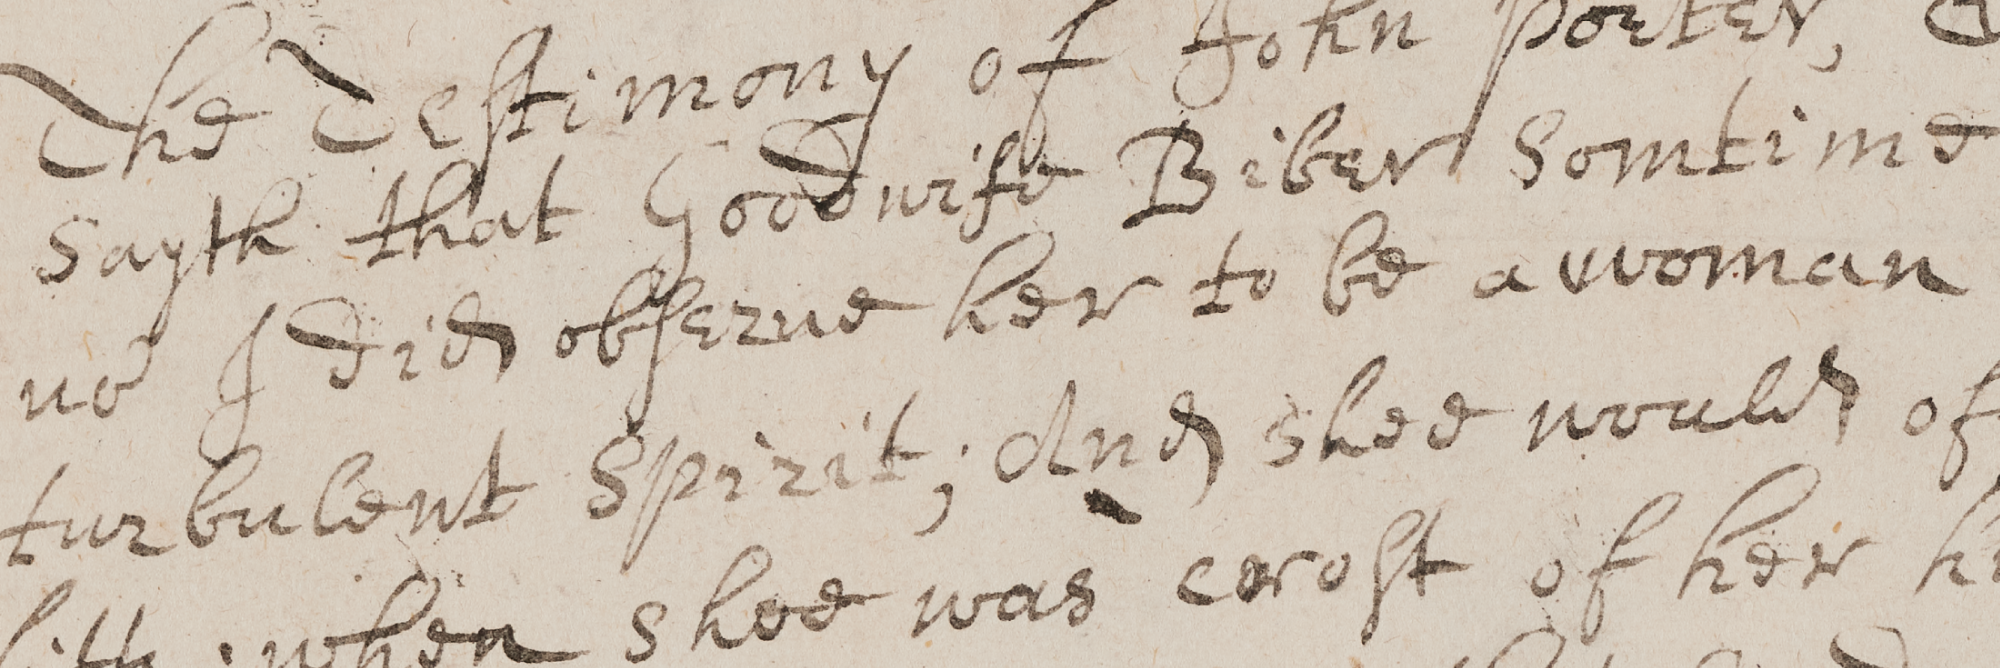 The Testimony of John porter,
Sayth that Goodwife Biber Somtime
no I did obserue her to be a woman
turbulent Spirit; And shee would of
when shee was crost of her